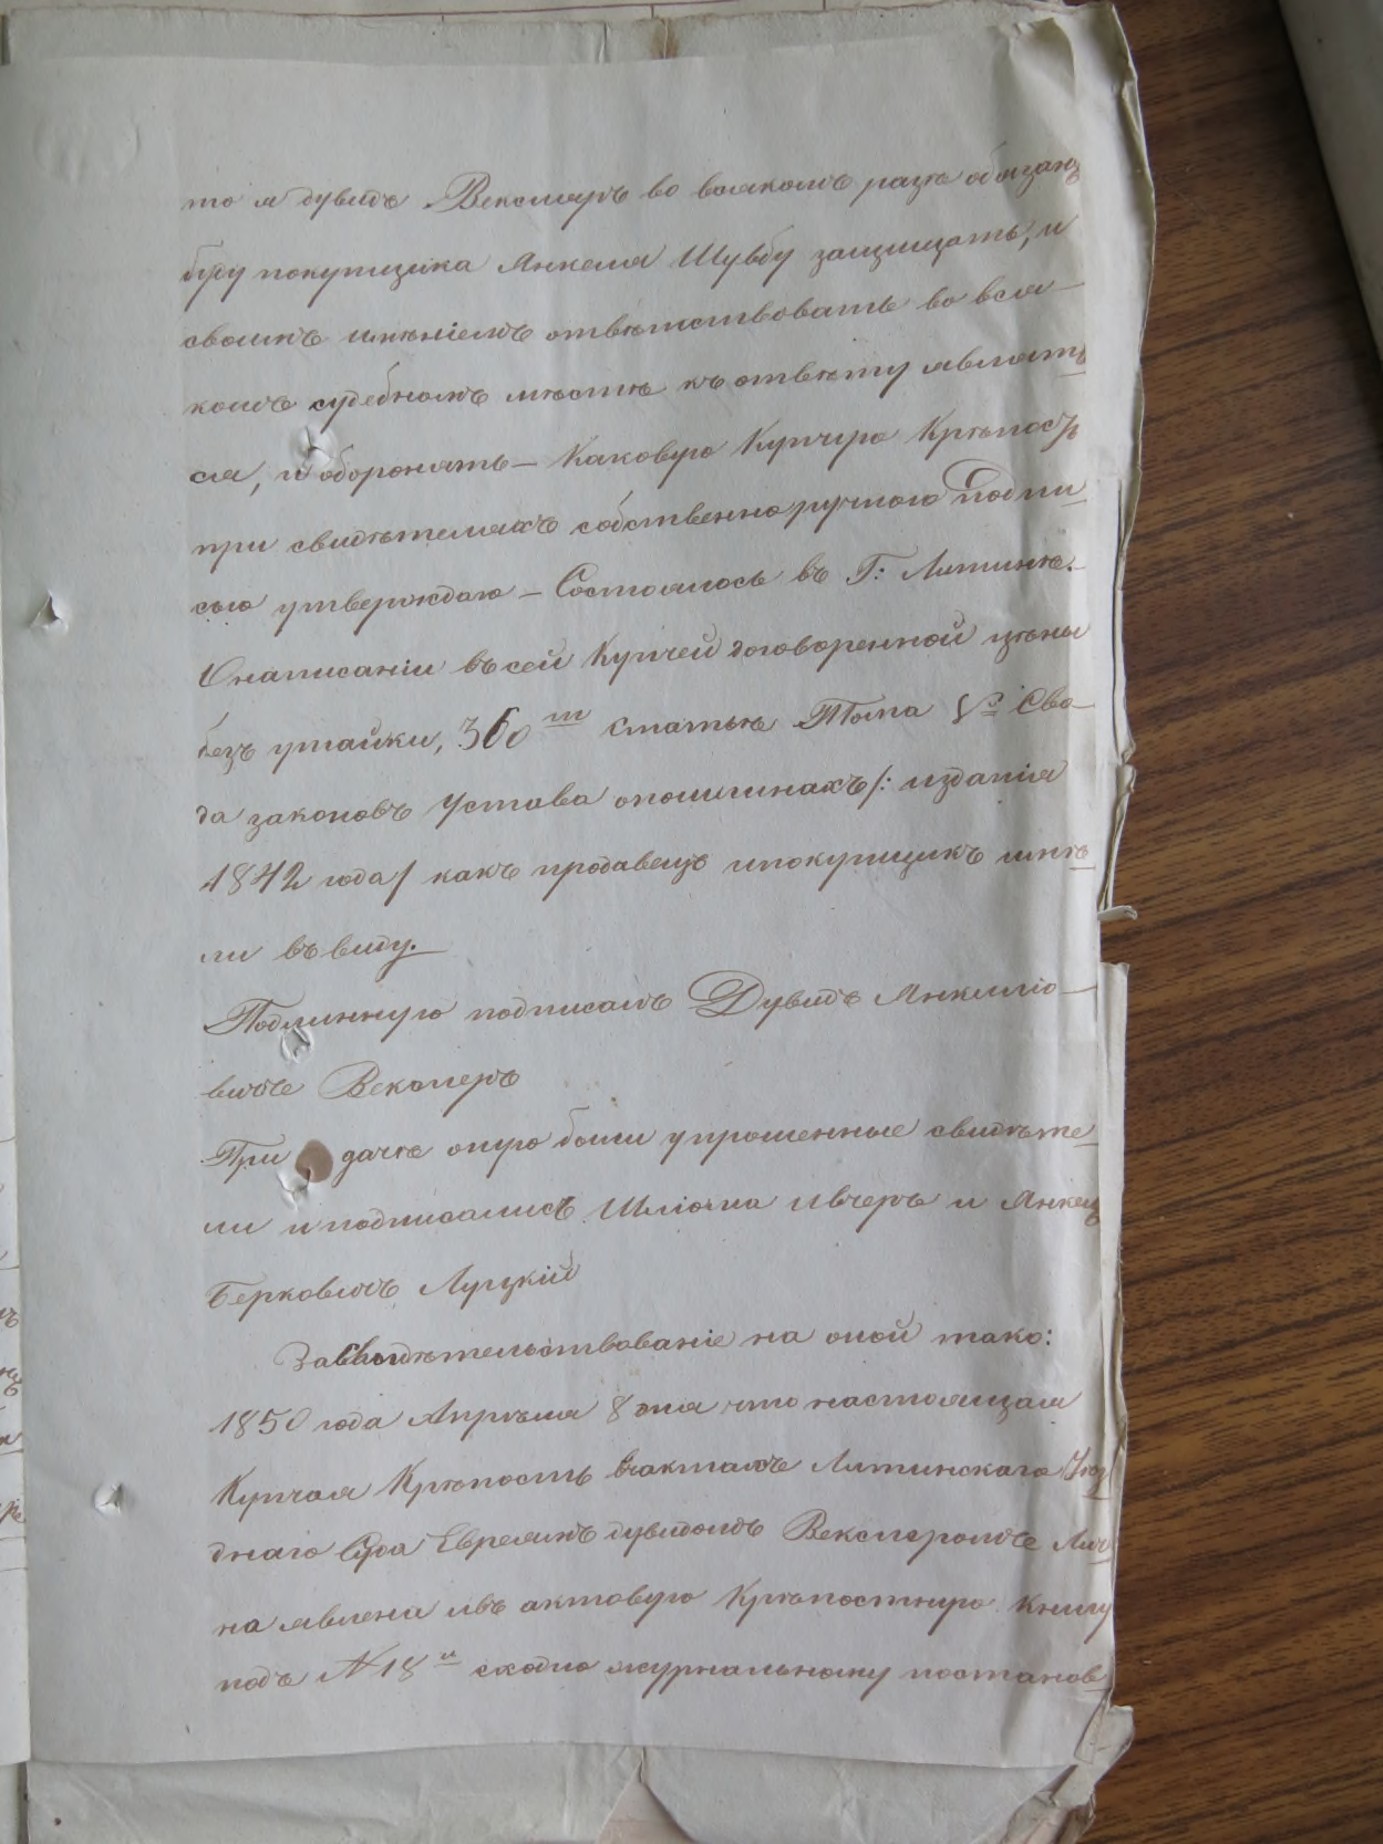 то я дувидъ Векслеръ во всякомъ разѣ обязанъ
буду покупщика Янкеля Шувбу защищать, и
своимъ имѣніемъ отвѣтствовать во вся-
комъ судебномъ мѣстѣ къ отвѣту являть
ся, и оборонять — Каковую Купчую Крѣпость
при свидѣтеляхъ собственноручною подпи
сью утверждаю — Состоялось въ Г: Литинѣ.—
О написаніи въ сей Купчей договоренной цѣны
безъ утайки, 360 ю Статью Тома V го Сво-
да законовъ Устава опошлинахъ /: изданія
1842 года / какъ продавецъ ипокупщикъ имѣ
ли въ виду.—
Подлинную подписалъ Дувидъ Янкеліо-
вичъ Векслеръ
При дачѣ оную были упрошенные свидѣте
ли и подписались Шліома Ивчеръ и Янкель
Берковичъ Луцкій
Засвидѣтельствованіе на оной тако:
1850 года Апрѣля 8 дня что настоящая
Купчая Крѣпость вактахъ Литинскаго Уѣз
днаго Суда Евреемъ дувидомъ Векслеромъ Лич
на явлена ивъ актовую Крѣпостную Книгу
подъ N 18 м сходно журнальному постанов